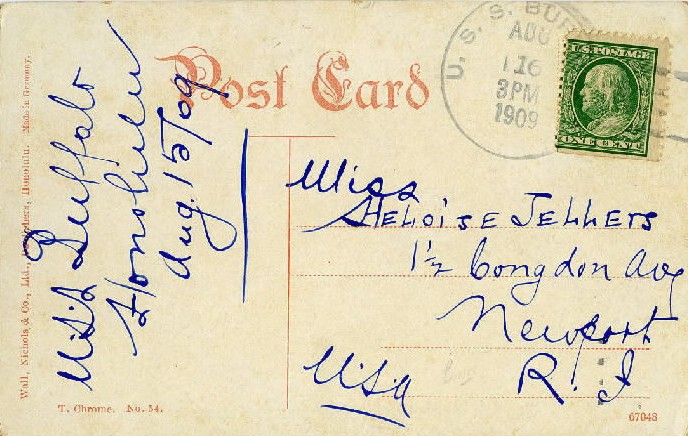 Post Card
U.S.S. Buffalo
Honolulu
Aug. 15/09
U. S. S. BUF
AUG
16
3PM
1909
U.S. POSTAGE
ONE CENT
Miss
HELOISE JELLERS
1½ Congdon Ave
Newport
R. I
U.S.A
Wall, Nichols & Co., Ltd., Honolulu. Made in Germany.
T. Chrome. No. 54.
67048